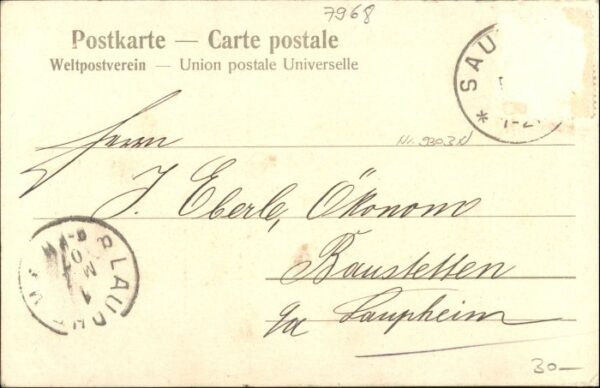 7968
Postkarte — Carte postale
Weltpostverein — Union postale Universelle
* SAU
Nr. 9303 N
Herrn
J. Eberle, Ökonom
Baustetten
Laupheim
30—